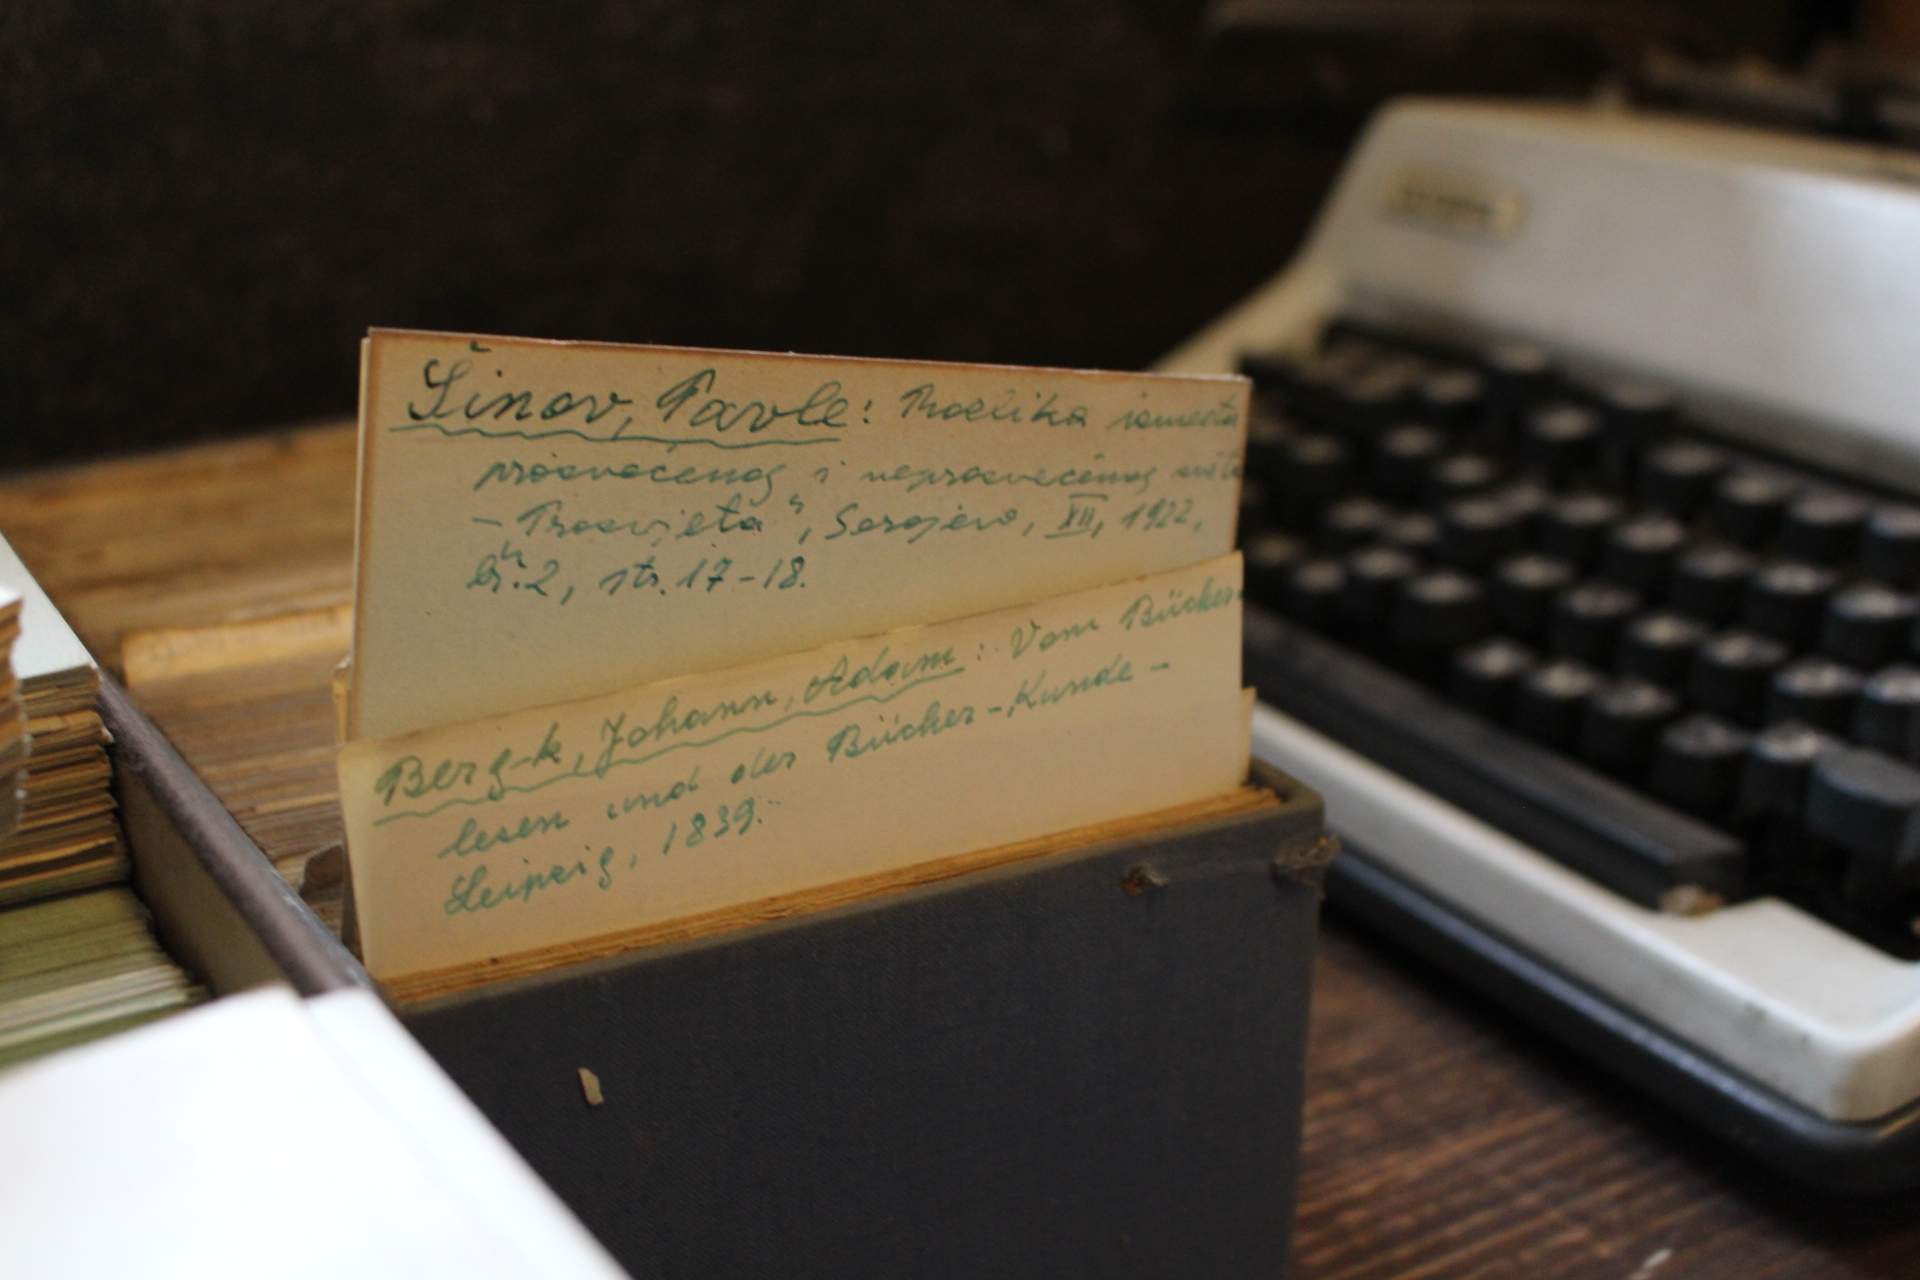 Šinov, Pavle: Razlika između
prosvećenog i neprosvećenog
– "Prosvjeta", Sarajevo, XII, 1922,
br. 2, str. 17-18.
Berg-k, Johann, Adam: Vom Bücher-
lesen und der Bücher-Kunde –
Leipzig, 1839.